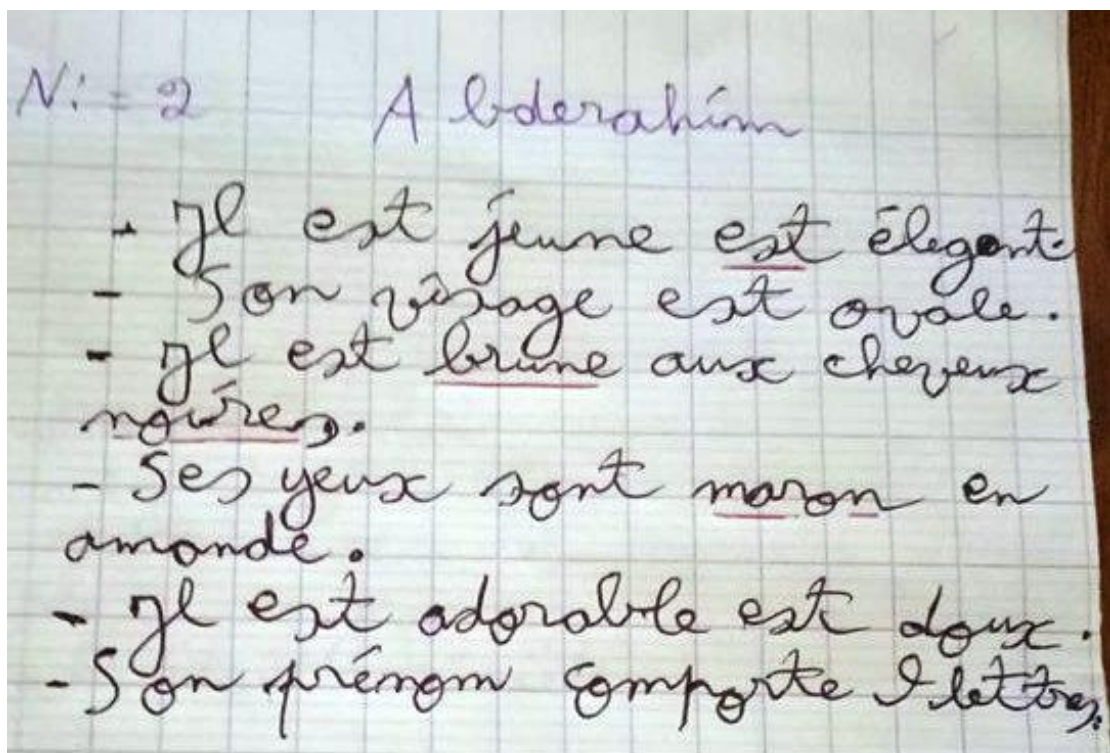 N: = 2 Abderahim
- Il est jeune est élegant.
- Son visage est ovale.
- Il est brune aux cheveux
noires.
- Ses yeux sont maron en
amande.
- Il est adorable est doux.
- Son prénom comporte 9 lettres.